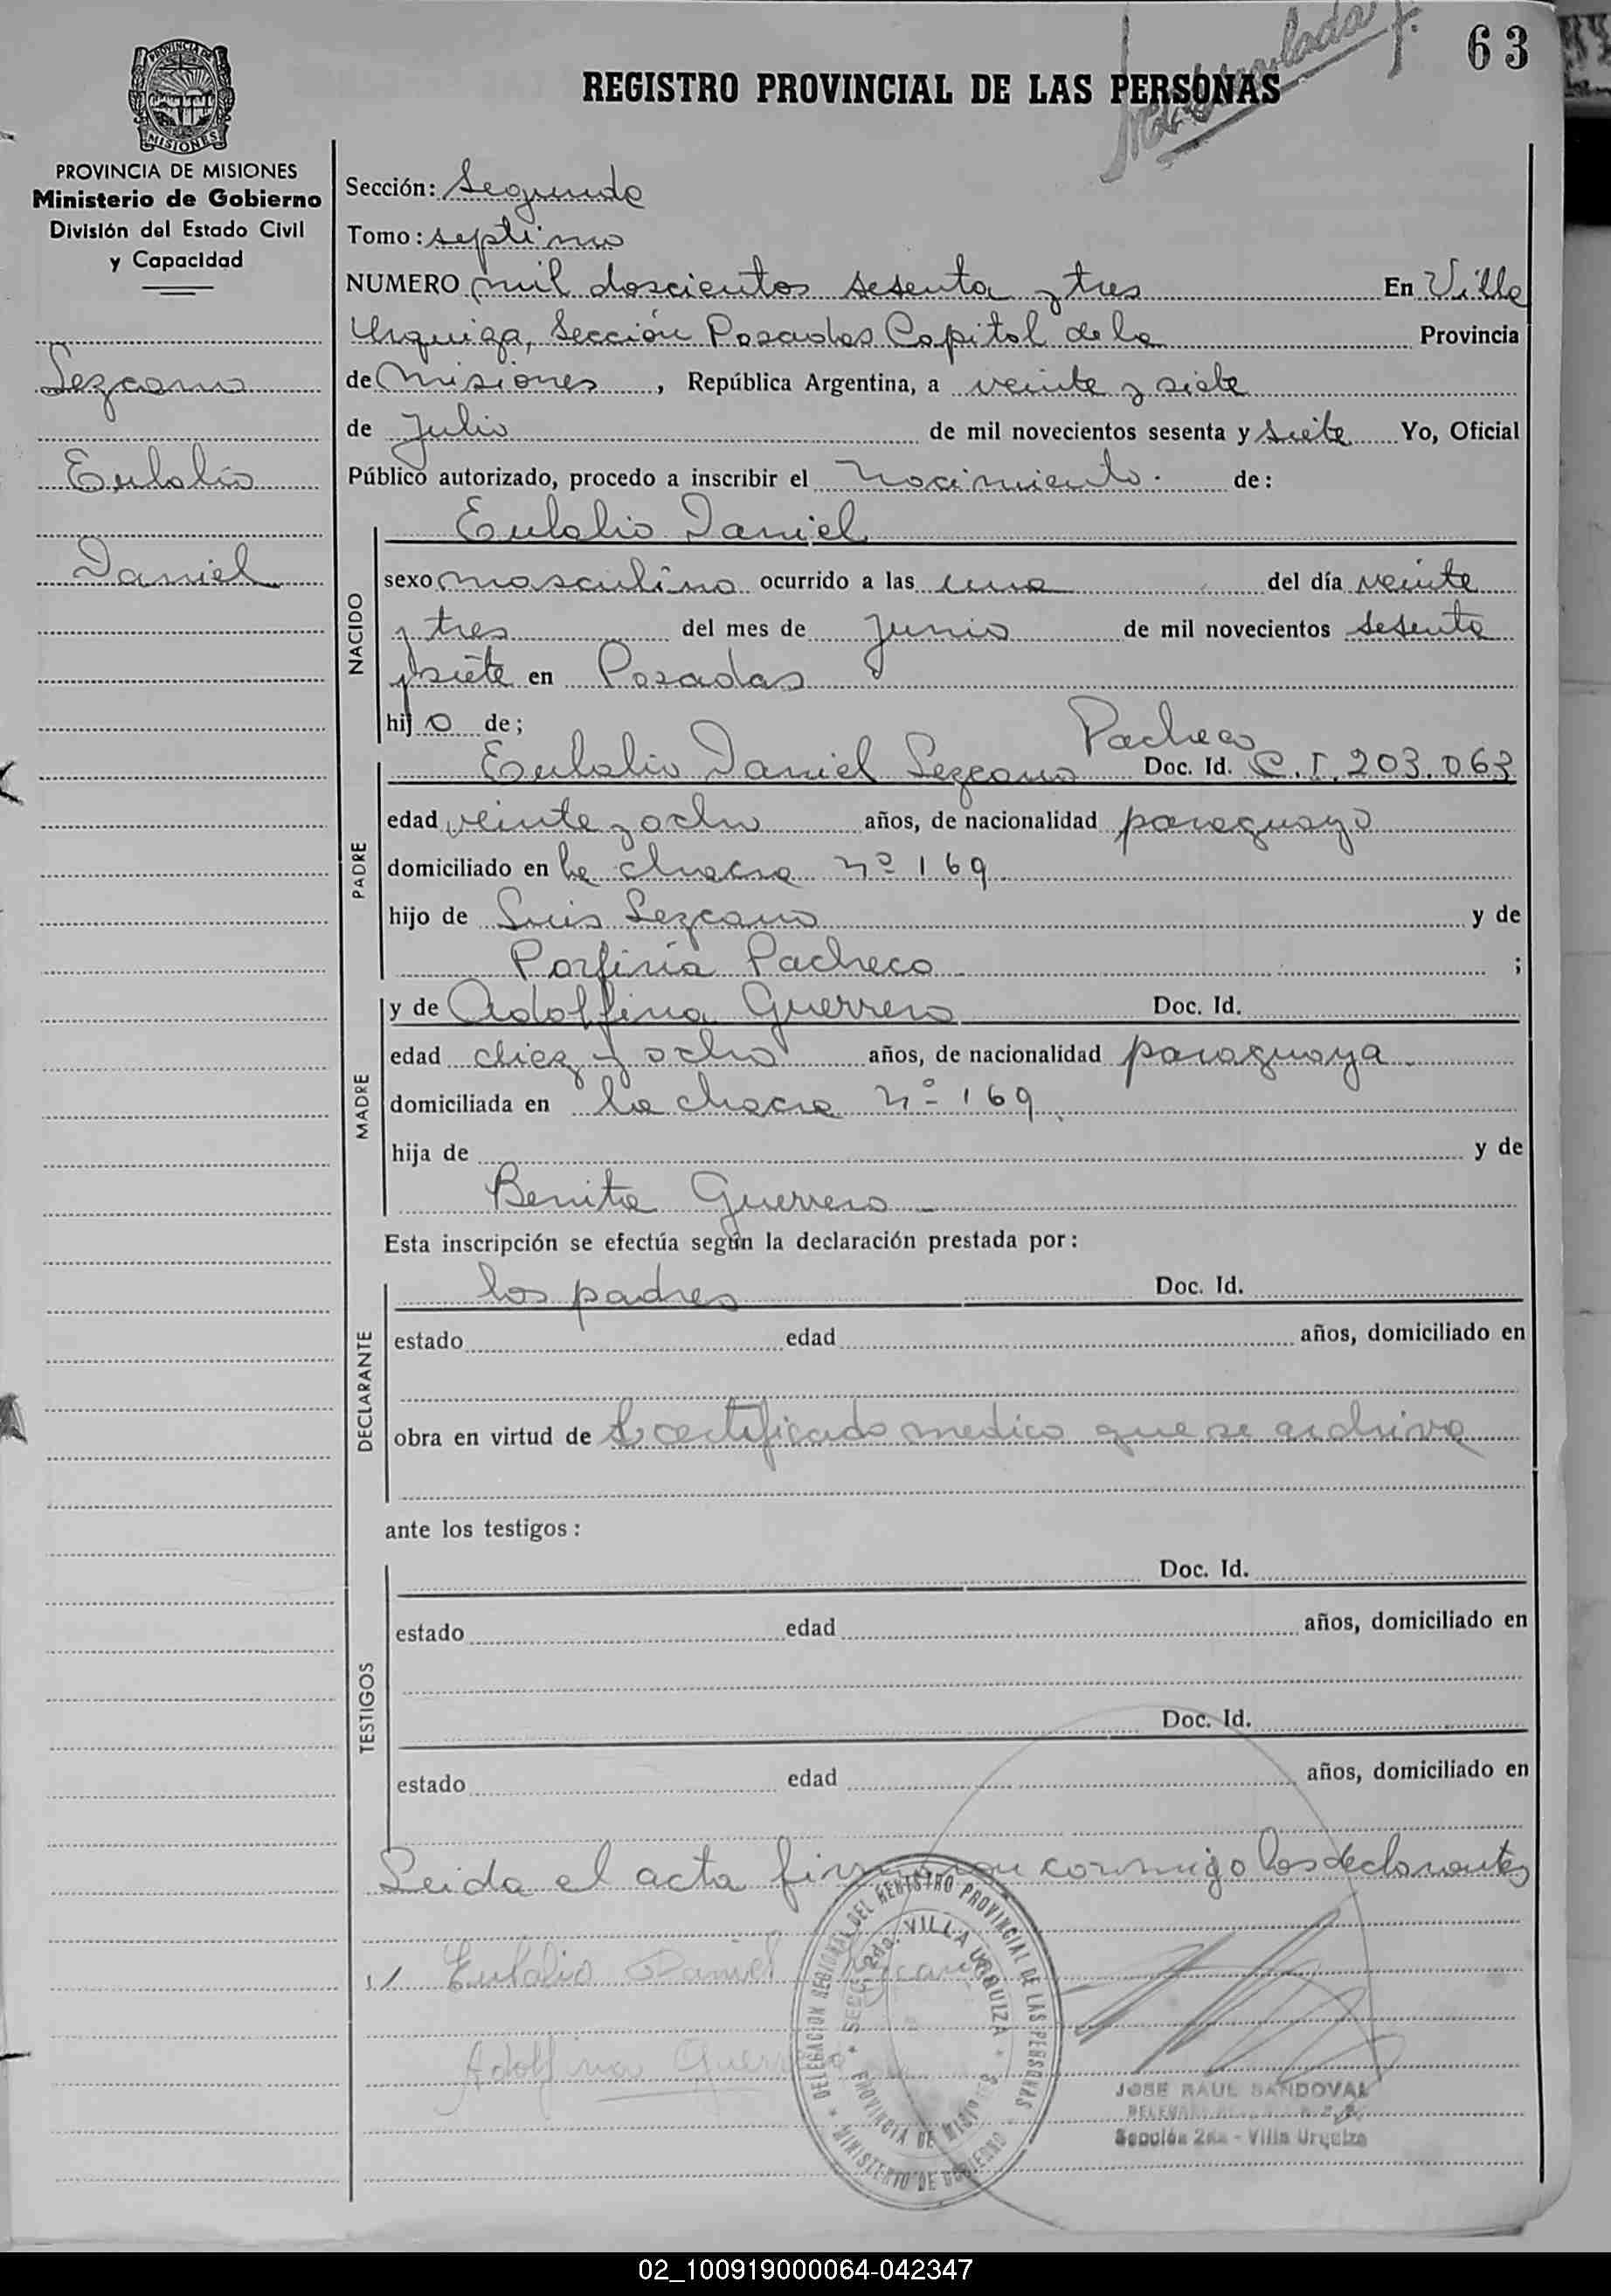 63
REGISTRO PROVINCIAL DE LAS PERSONAS
PROVINCIA DE MISIONES
Ministerio de Gobierno
División del Estado Civil
y Capacidad
Lezcano
Eulalio
Daniel
Sección: Segunda
Tomo: septimo
NUMERO mil doscientos sesenta y tres En Villa
Urquiza, Sección Posadas Capital de la Provincia
de Misiones, República Argentina, a veinte y siete
de Julio de mil novecientos sesenta y siete Yo, Oficial
Público autorizado, procedo a inscribir el nacimiento. de:
NACIDO
Eulalio Daniel
sexo masculino ocurrido a las una del día veinte
y tres del mes de Junio de mil novecientos sesenta
y siete en Posadas
hijo de;
PADRE
Pacheco
Eulalio Daniel Lezcano Doc. Id. C.I. 203.063
edad veinte y ocho años, de nacionalidad paraguayo
domiciliado en la chacra nº 169
hijo de Luis Lezcano y de
Porfiria Pacheco ;
MADRE
y de Adolfina Guerrero Doc. Id.
edad diez y ocho años, de nacionalidad paraguaya
domiciliada en la chacra nº 169
hija de y de
Benita Guerrero
Esta inscripción se efectúa según la declaración prestada por:
DECLARANTE
los padres Doc. Id.
estado edad años, domiciliado en
obra en virtud de certificado medico que se archiva
ante los testigos:
TESTIGOS
Doc. Id.
estado edad años, domiciliado en
Doc. Id.
estado edad años, domiciliado en
Leida el acta firmaron conmigo los declarantes
Eulalio Daniel Lezcano
Adolfina Guerrero
DELEGACION REGIONAL DEL REGISTRO PROVINCIAL DE LAS PERSONAS
SECC. 2da. VILLA URQUIZA
PROVINCIA DE MISIONES
MINISTERIO DE GOBIERNO
JOSE RAUL SANDOVAL
Sección 2da - Villa Urquiza
02_100919000064-042347